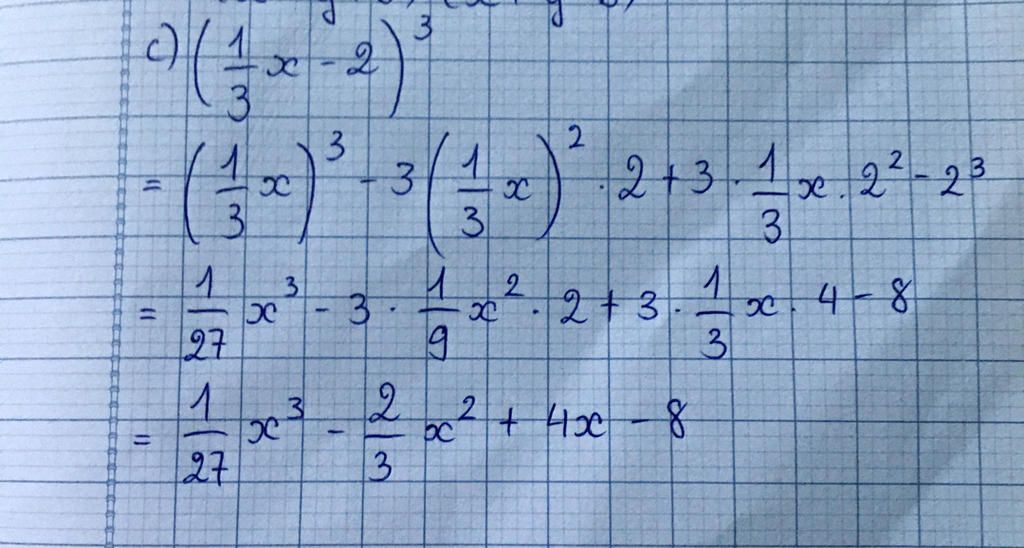 c) (1/3 x - 2)^3
= (1/3 x)^3 - 3 (1/3 x)^2 · 2 + 3 · 1/3 x · 2^2 - 2^3
= 1/27 x^3 - 3 · 1/9 x^2 · 2 + 3 · 1/3 x · 4 - 8
= 1/27 x^3 - 2/3 x^2 + 4x - 8